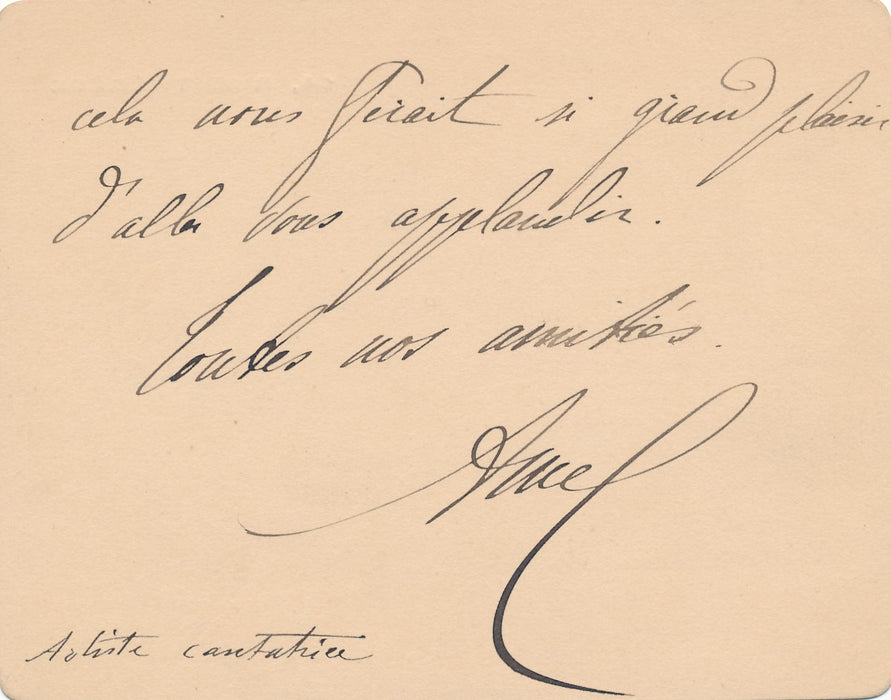 cela nous ferait si grand plaisir
d'aller vous applaudir.
Toutes nos amitiés.
Amel
Artiste cantatrice